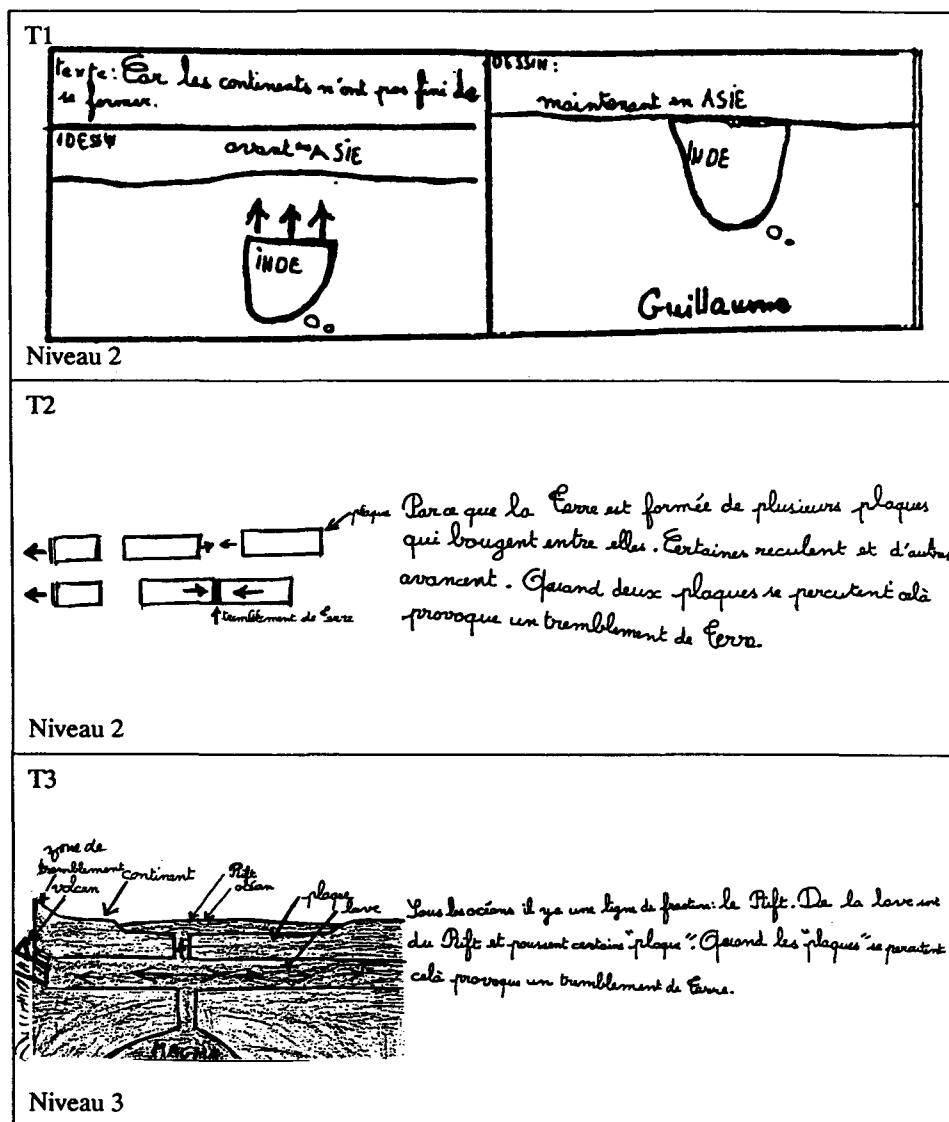 T1
texte: Car les continents n'ont pas fini de
se former.
DESSIN
avant en ASIE
INDE
DESSIN:
maintenant en ASIE
INDE
Guillaume
Niveau 2
T2
plaque
tremblement de Terre
Parce que la Terre est formée de plusieurs plaques
qui bougent entre elles. Certaines reculent et d'autres
avancent. Quand deux plaques se percutent celà
provoque un tremblement de Terre.
Niveau 2
T3
zone de
tremblement
volcan
continent
Rift
océan
plaque
lave
MAGMA
Sous les océans il y a une ligne de fracture: le Rift. De la lave sort
du Rift et poussent certains "plaque". Quand les "plaques" se percutent
celà provoque un tremblement de Terre.
Niveau 3